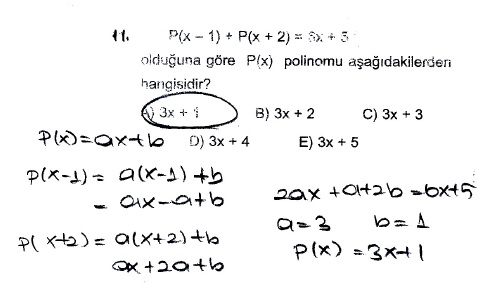 11. P(x – 1) + P(x + 2) = 6x + 5
olduğuna göre P(x) polinomu aşağıdakilerden
hangisidir?
A) 3x + 1 B) 3x + 2 C) 3x + 3
D) 3x + 4 E) 3x + 5
P(x)=ax+b
P(x-1) = a(x-1)+b
= ax-a+b
P(x+2) = a(x+2)+b
ax+2a+b
2ax+a+2b=6x+5
a=3 b=1
P(x)=3x+1